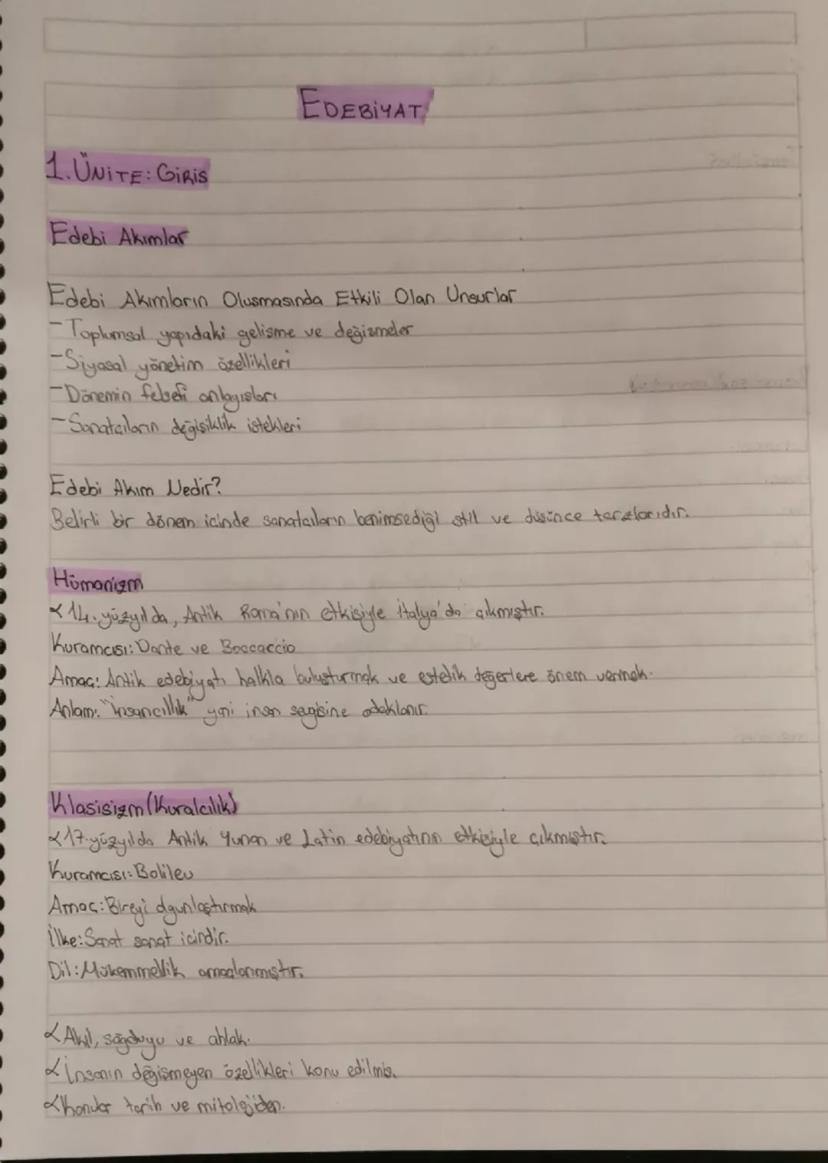 EDEBİYAT
1. ÜNİTE: GİRİS
Edebi Akımlar
Edebi Akımların Olusmasında Etkili Olan Unsurlar
-Toplumsal yapıdaki gelisme ve değismeler
-Siyasal yönetim özellikleri
-Dönemin felsefi anlayısları
-Sanatcıların değisiklik istekleri
Edebi Akım Nedir?
Belirli bir dönem icinde sanatcıların benimsediği stil ve düsünce tarzlarıdır.
Hümanizm
14. yüzyılda, Antik Roma'nın etkisiyle İtalya'da çıkmıştır.
Kuramcısı: Dante ve Boccaccio
Amac: Antik edebiyatı halkla buluşturmak ve estetik değerlere önem vermek.
Anlam: "İnsancıllık" yani insan sevgisine odaklanır.
Klasisizm (Kuralcılık)
17. yüzyılda Antik Yunan ve Latin edebiyatının etkisiyle çıkmıştır.
Kuramcısı: Boileu
Amac: Bireyi olgunlaştırmak
İlke: Sanat sanat icindir.
Dil: Mükemmellik amaclanmıştır.
Akıl, sağduyu ve ahlak.
İnsanın değismeyen özellikleri konu edilmis.
Konular tarih ve mitolojiden.